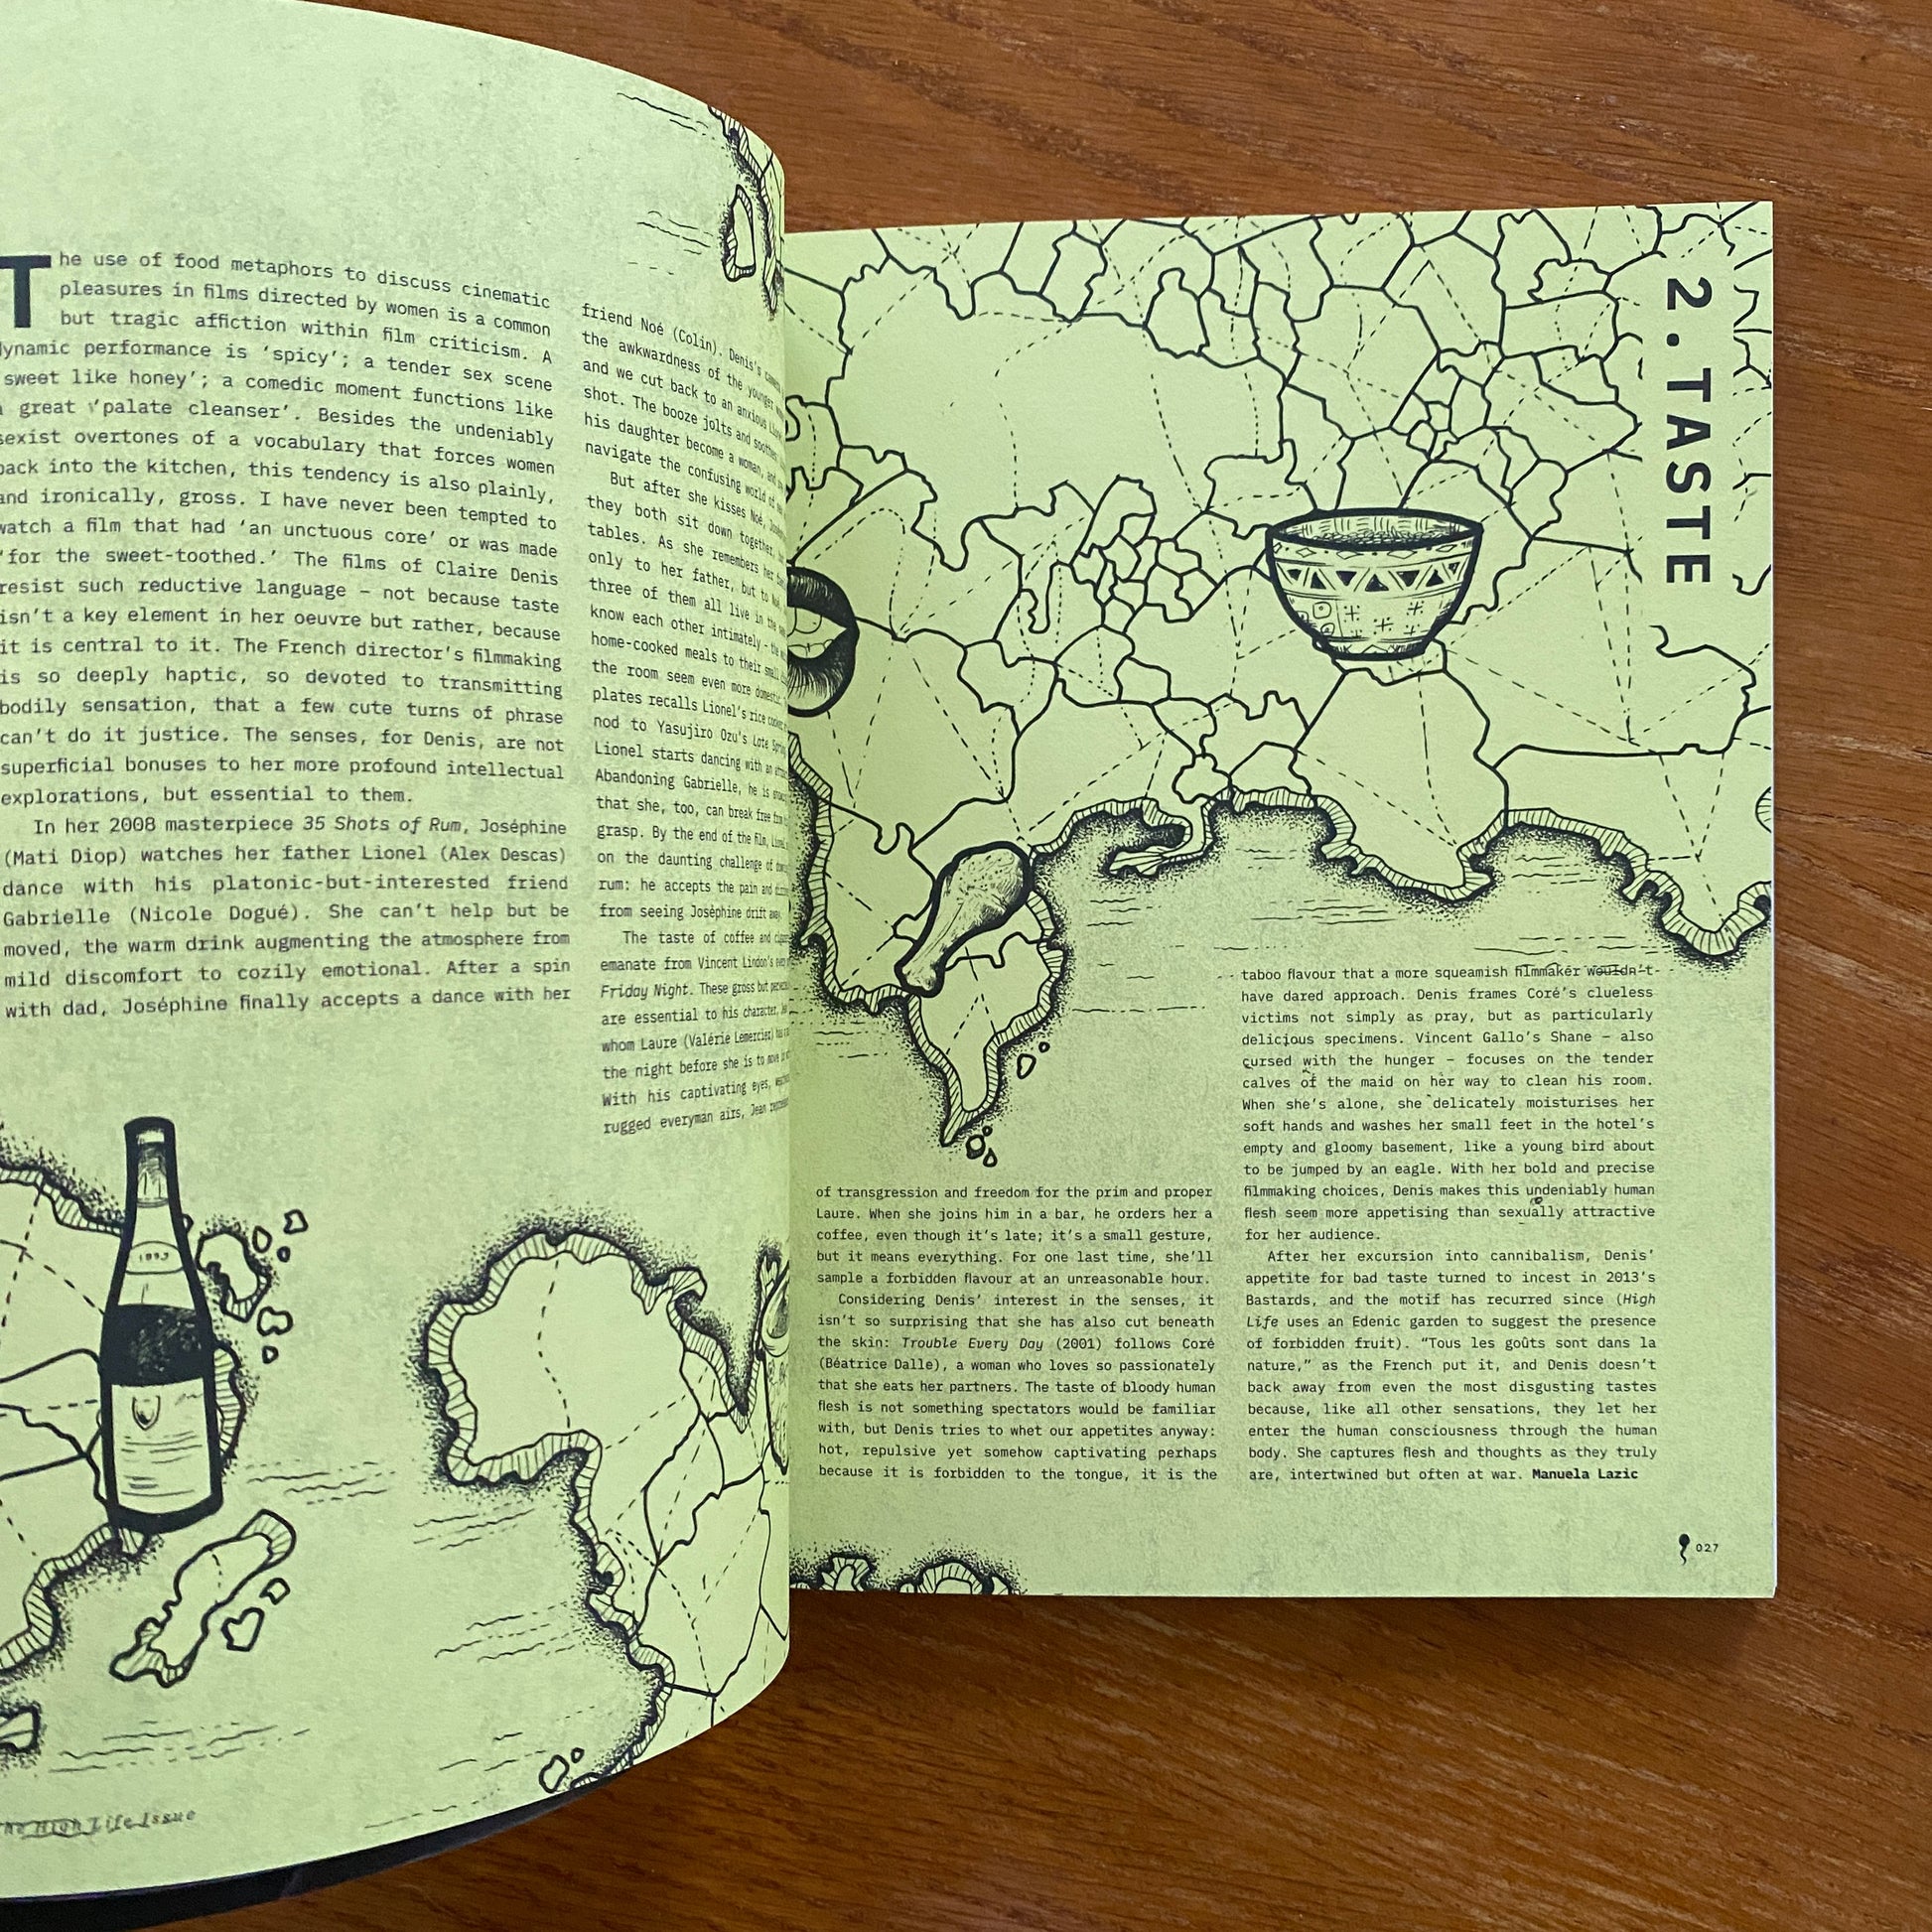 The use of food metaphors to discuss cinematic
pleasures in films directed by women is a common
but tragic affiction within film criticism. A
dynamic performance is ‘spicy’; a tender sex scene
‘sweet like honey’; a comedic moment functions like
a great ‘palate cleanser’. Besides the undeniably
sexist overtones of a vocabulary that forces women
back into the kitchen, this tendency is also plainly,
and ironically, gross. I have never been tempted to
watch a film that had ‘an unctuous core’ or was made
‘for the sweet-toothed.’ The films of Claire Denis
resist such reductive language – not because taste
isn’t a key element in her oeuvre but rather, because
it is central to it. The French director’s filmmaking
is so deeply haptic, so devoted to transmitting
bodily sensation, that a few cute turns of phrase
can’t do it justice. The senses, for Denis, are not
superficial bonuses to her more profound intellectual
explorations, but essential to them.
In her 2008 masterpiece 35 Shots of Rum, Joséphine
(Mati Diop) watches her father Lionel (Alex Descas)
dance with his platonic-but-interested friend
Gabrielle (Nicole Dogué). She can’t help but be
moved, the warm drink augmenting the atmosphere from
mild discomfort to cozily emotional. After a spin
with dad, Joséphine finally accepts a dance with her
friend Noé (Colin). Denis’s
the awkwardness of the younger
and we cut back to an anxious
shot. The booze jolts and soothes
his daughter become a woman, and
navigate the confusing world of
But after she kisses Noé,
they both sit down together,
tables. As she remembers her
only to her father, but to
three of them all live in the
know each other intimately – the
home-cooked meals to their small
the room seem even more domestic.
plates recalls Lionel’s rice cooker,
nod to Yasujiro Ozu’s Late Spring
Lionel starts dancing with an
Abandoning Gabrielle, he is
that she, too, can break free
grasp. By the end of the film, Lionel
on the daunting challenge of
rum: he accepts the pain and
from seeing Joséphine drift away.
The taste of coffee and
emanate from Vincent Lindon’s
Friday Night. These gross but
are essential to his character,
whom Laure (Valérie Lemercier)
the night before she is to move
With his captivating eyes,
rugged everyman airs, Jean
1993
The High Life Issue
2. TASTE
of transgression and freedom for the prim and proper
Laure. When she joins him in a bar, he orders her a
coffee, even though it’s late; it’s a small gesture,
but it means everything. For one last time, she’ll
sample a forbidden flavour at an unreasonable hour.
Considering Denis’ interest in the senses, it
isn’t so surprising that she has also cut beneath
the skin: Trouble Every Day (2001) follows Coré
(Béatrice Dalle), a woman who loves so passionately
that she eats her partners. The taste of bloody human
flesh is not something spectators would be familiar
with, but Denis tries to whet our appetites anyway:
hot, repulsive yet somehow captivating perhaps
because it is forbidden to the tongue, it is the
taboo flavour that a more squeamish filmmaker wouldn’t
have dared approach. Denis frames Coré’s clueless
victims not simply as pray, but as particularly
delicious specimens. Vincent Gallo’s Shane – also
cursed with the hunger – focuses on the tender
calves of the maid on her way to clean his room.
When she’s alone, she delicately moisturises her
soft hands and washes her small feet in the hotel’s
empty and gloomy basement, like a young bird about
to be jumped by an eagle. With her bold and precise
filmmaking choices, Denis makes this undeniably human
flesh seem more appetising than sexually attractive
for her audience.
After her excursion into cannibalism, Denis’
appetite for bad taste turned to incest in 2013’s
Bastards, and the motif has recurred since (High
Life uses an Edenic garden to suggest the presence
of forbidden fruit). “Tous les goûts sont dans la
nature,” as the French put it, and Denis doesn’t
back away from even the most disgusting tastes
because, like all other sensations, they let her
enter the human consciousness through the human
body. She captures flesh and thoughts as they truly
are, intertwined but often at war. Manuela Lazic
027